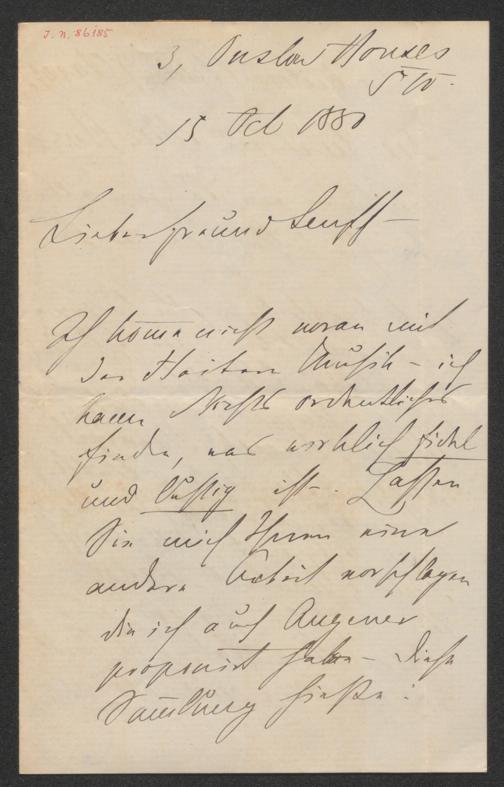 J. N. 86185
3, Onslow Houses
S W.
15 Oct 1880
Lieber Freund Senff —
Ich kom̄e nicht voran mit
der Heitern Musik — ich
kann Nichts ordentliches
finden, was wirklich fidel
und lustig ist. Lassen
Sie mich Ihnen eine
andere Arbeit vorschlagen
die ich auch Augener
proponirt habe — diese
Sam̄lung hieße: